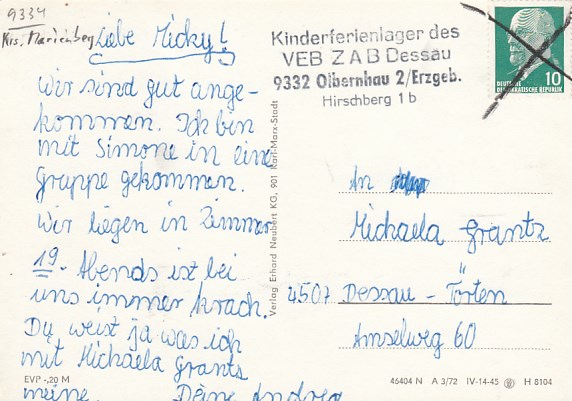 9334
Krs. Marienberg
Liebe Micky!
Wir sind gut ange-
kommen. Ich bin
mit Simone in eine
Gruppe gekommen.
Wir liegen in Zimmer
19. Abends ist bei
uns immer krach.
Du weist ja was ich
mit Michaela Grants
meine. Deine Andrea
EVP -,20 M
Verlag Erhard Neubert KG, 901 Karl-Marx-Stadt
Kinderferienlager des
VEB ZAB Dessau
9332 Olbernhau 2/Erzgeb.
Hirschberg 1b
10
DEUTSCHE
DEMOKRATISCHE REPUBLIK
An
Michaela Grantz
4507 Dessau - Törten
Amselweg 60
45404 N A 3/72 IV-14-45 H 8104